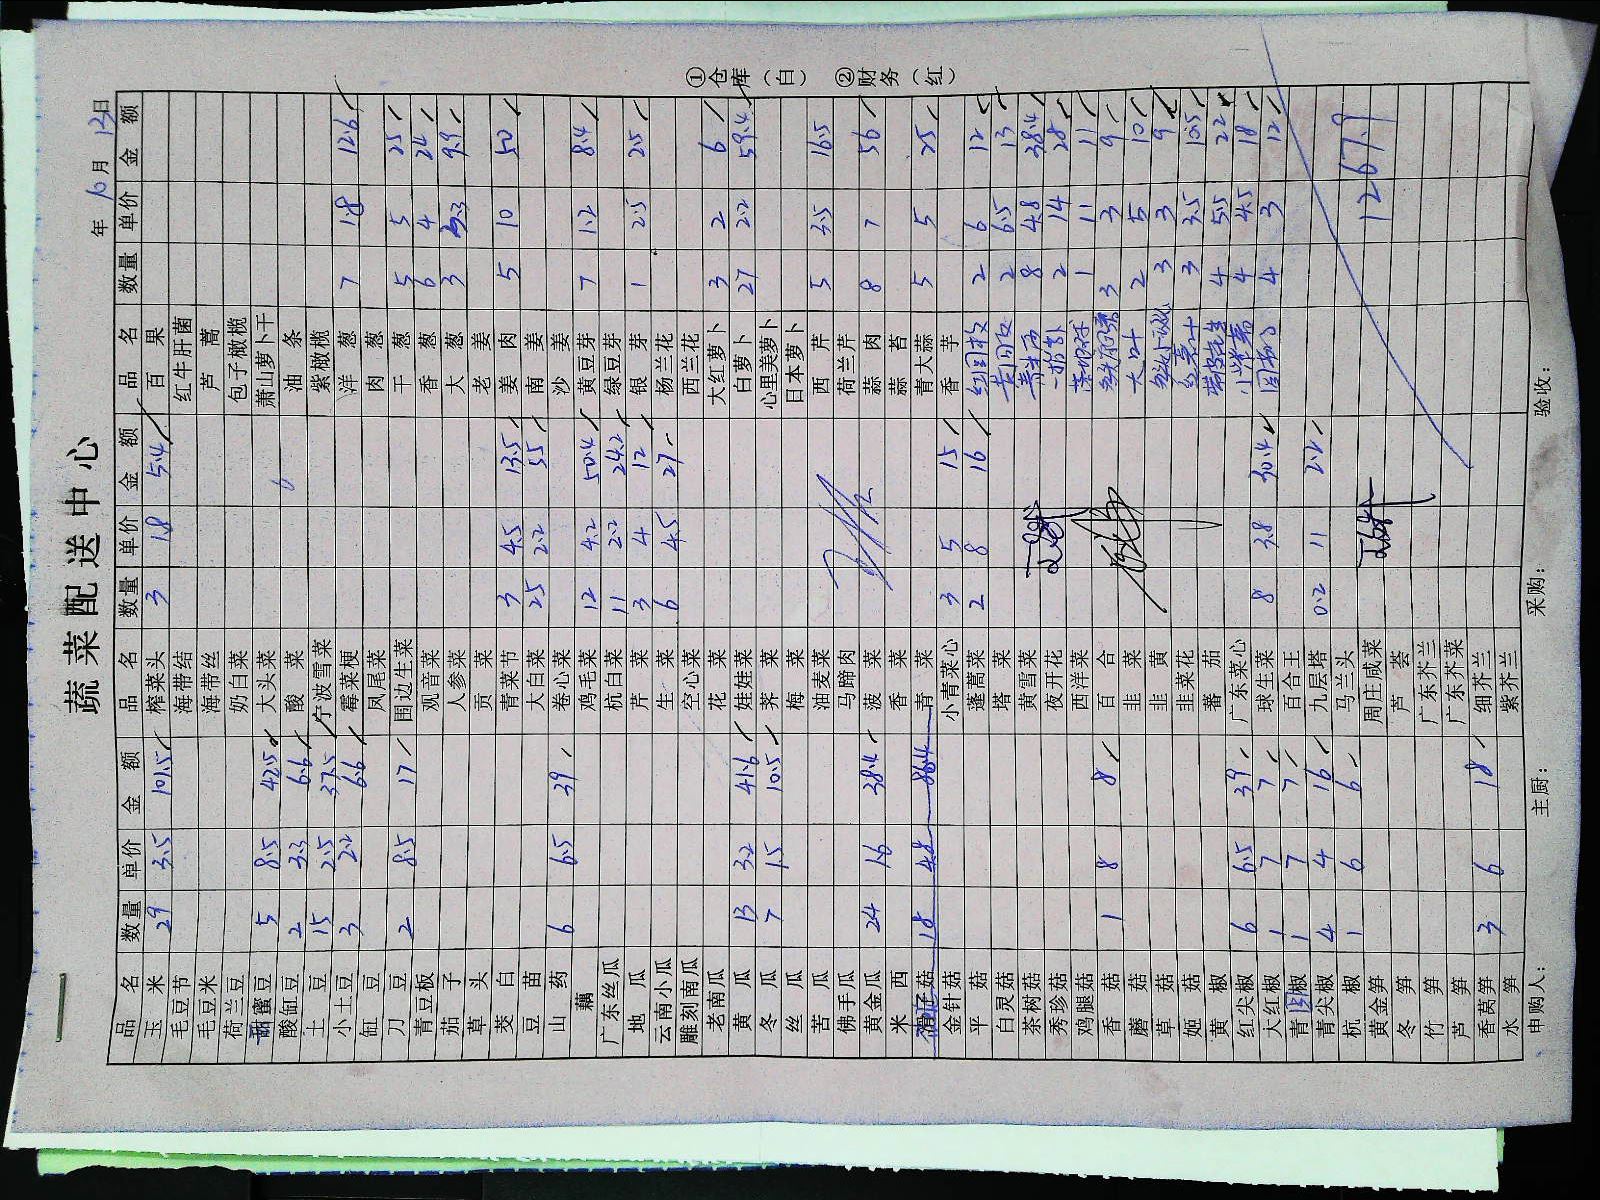 蔬菜配送中心
年 10月 13日
品名 数量 单价 金额 品名 数量 单价 金额 品名 数量 单价 金额
玉米 29 3.5 101.5 榨菜头 3 1.8 5.4 百果
毛豆节 海带结 红牛肝菌
毛豆米 海带丝 芦蒿
荷兰豆 奶白菜 包子橄榄
甜蜜豆 5 8.5 42.5 大头菜 萧山萝卜干
酸缸豆 2 3.3 6.6 酸菜 油条
土豆 15 2.5 37.5 宁波雪菜 紫橄榄
小土豆 3 2.2 6.6 霉菜梗 洋葱 7 1.8 12.6
缸豆 凤尾菜 肉葱
刀豆 2 8.5 17 围边生菜 干葱 5 5 25
青豆板 观音菜 香葱 6 4 24
茄子 人参菜 大葱 3 3.3 9.9
草头 贡菜 老姜
茭白 青菜节 3 4.5 13.5 姜肉 5 10 50
豆苗 大白菜 25 2.2 55 南姜
山药 6 6.5 39 卷心菜 沙姜
藕 鸡毛菜 12 4.2 50.4 黄豆芽 7 1.2 8.4
广东丝瓜 杭白菜 11 2.2 24.2 绿豆芽
地瓜 芹菜 3 4 12 银芽 1 2.5 2.5
云南小瓜 生菜 6 4.5 27 杨兰花
雕刻南瓜 空心菜 西兰花
老南瓜 花菜 大红萝卜 3 2 6
黄瓜 13 3.2 41.6 娃娃菜 白萝卜 27 2.2 59.4
冬瓜 7 1.5 10.5 荠菜 心里美萝卜
丝瓜 梅菜 日本萝卜
苦瓜 油麦菜 西芹 5 3.5 16.5
佛手瓜 马蹄肉 荷兰芹
黄金瓜 24 1.6 38.4 菠菜 蒜肉 8 7 56
米西 香菜 蒜苔
菇 18 4.8 86.4 青菜 青大蒜 5 5 25
金针菇 小青菜心 3 5 15 香芋
平菇 蓬蒿菜 2 8 16 2 6 12
白灵菇 塔菜 2 6.5 13
茶树菇 黄雪菜 8 4.8 38.4
秀珍菇 夜开花 2 14 28
鸡腿菇 西洋菜 1 11 11
香菇 1 8 8 百合 3 3 9
蘑菇 韭菜 大叶 2 5 10
草菇 韭黄 3 3 9
姬菇 韭菜花 3 3.5 10.5
黄椒 蕃茄 4 5.5 22
红尖椒 6 6.5 39 广东菜心 4 4.5 18
大红椒 1 7 7 球生菜 8 3.8 30.4 4 3 12
青圆椒 1 7 7 百合王
青尖椒 4 4 16 九层塔 0.2 11 2.2
杭椒 1 6 6 马兰头
黄金笋 周庄咸菜 1267.9
冬笋 芦荟
竹笋 广东芥兰
芦笋 广东芥菜
香莴笋 3 6 18 细芥兰
水笋 紫芥兰
申购人： 主厨： 采购： 验收：
①仓库（白） ②财务（红）